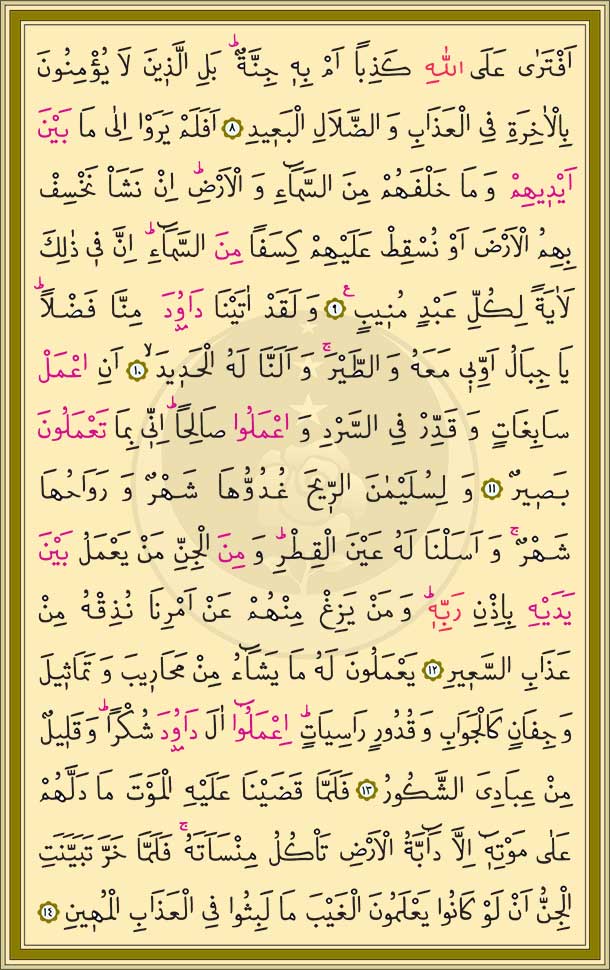 اَفْتَرٰى عَلَى اللّٰهِ كَذِباً اَمْ بِهٖ جِنَّةٌۜ بَلِ الَّذٖينَ لَا يُؤْمِنُونَ
بِالْاٰخِرَةِ فِي الْعَذَابِ وَ الضَّلَالِ الْبَعٖيدِ ﴿٨﴾ اَفَلَمْ يَرَوْا اِلٰى مَا بَيْنَ
اَيْدٖيهِمْ وَ مَا خَلْفَهُمْ مِنَ السَّمَٓاءِ وَ الْاَرْضِۜ اِنْ نَشَاْ نَخْسِفْ
بِهِمُ الْاَرْضَ اَوْ نُسْقِطْ عَلَيْهِمْ كِسَفاً مِنَ السَّمَٓاءِۜ اِنَّ فٖي ذٰلِكَ
لَاٰيَةً لِكُلِّ عَبْدٍ مُنٖيبٍࣖ ﴿٩﴾ وَ لَقَدْ اٰتَيْنَا دَاوُ۫دَ مِنَّا فَضْلاًۜ
يَا جِبَالُ اَوِّبٖي مَعَهُ وَ الطَّيْرَۚ وَ اَلَنَّا لَهُ الْحَدٖيدَۙ ﴿١٠﴾ اَنِ اعْمَلْ
سَابِغَاتٍ وَ قَدِّرْ فِي السَّرْدِ وَ اعْمَلُوا صَالِحاًۜ اِنّٖي بِمَا تَعْمَلُونَ
بَصٖيرٌ ﴿١١﴾ وَ لِسُلَيْمٰنَ الرّٖيحَ غُدُوُّهَا شَهْرٌ وَ رَوَاحُهَا
شَهْرٌۚ وَ اَسَلْنَا لَهُ عَيْنَ الْقِطْرِۜ وَ مِنَ الْجِنِّ مَنْ يَعْمَلُ بَيْنَ
يَدَيْهِ بِاِذْنِ رَبِّهٖۜ وَ مَنْ يَزِغْ مِنْهُمْ عَنْ اَمْرِنَا نُذِقْهُ مِنْ
عَذَابِ السَّعٖيرِ ﴿١٢﴾ يَعْمَلُونَ لَهُ مَا يَشَٓاءُ مِنْ مَحَارٖيبَ وَ تَمَاثٖيلَ
وَ جِفَانٍ كَالْجَوَابِ وَ قُدُورٍ رَاسِيَاتٍۜ اِعْمَلُٓوا اٰلَ دَاوُ۫دَ شُكْراًۜ وَ قَلٖيلٌ
مِنْ عِبَادِيَ الشَّكُورُ ﴿١٣﴾ فَلَمَّا قَضَيْنَا عَلَيْهِ الْمَوْتَ مَا دَلَّهُمْ
عَلٰى مَوْتِهٖٓ اِلَّا دَٓابَّةُ الْاَرْضِ تَاْكُلُ مِنْسَاَتَهُۚ فَلَمَّا خَرَّ تَبَيَّنَتِ
الْجِنُّ اَنْ لَوْ كَانُوا يَعْلَمُونَ الْغَيْبَ مَا لَبِثُوا فِي الْعَذَابِ الْمُهٖينِ ﴿١٤﴾